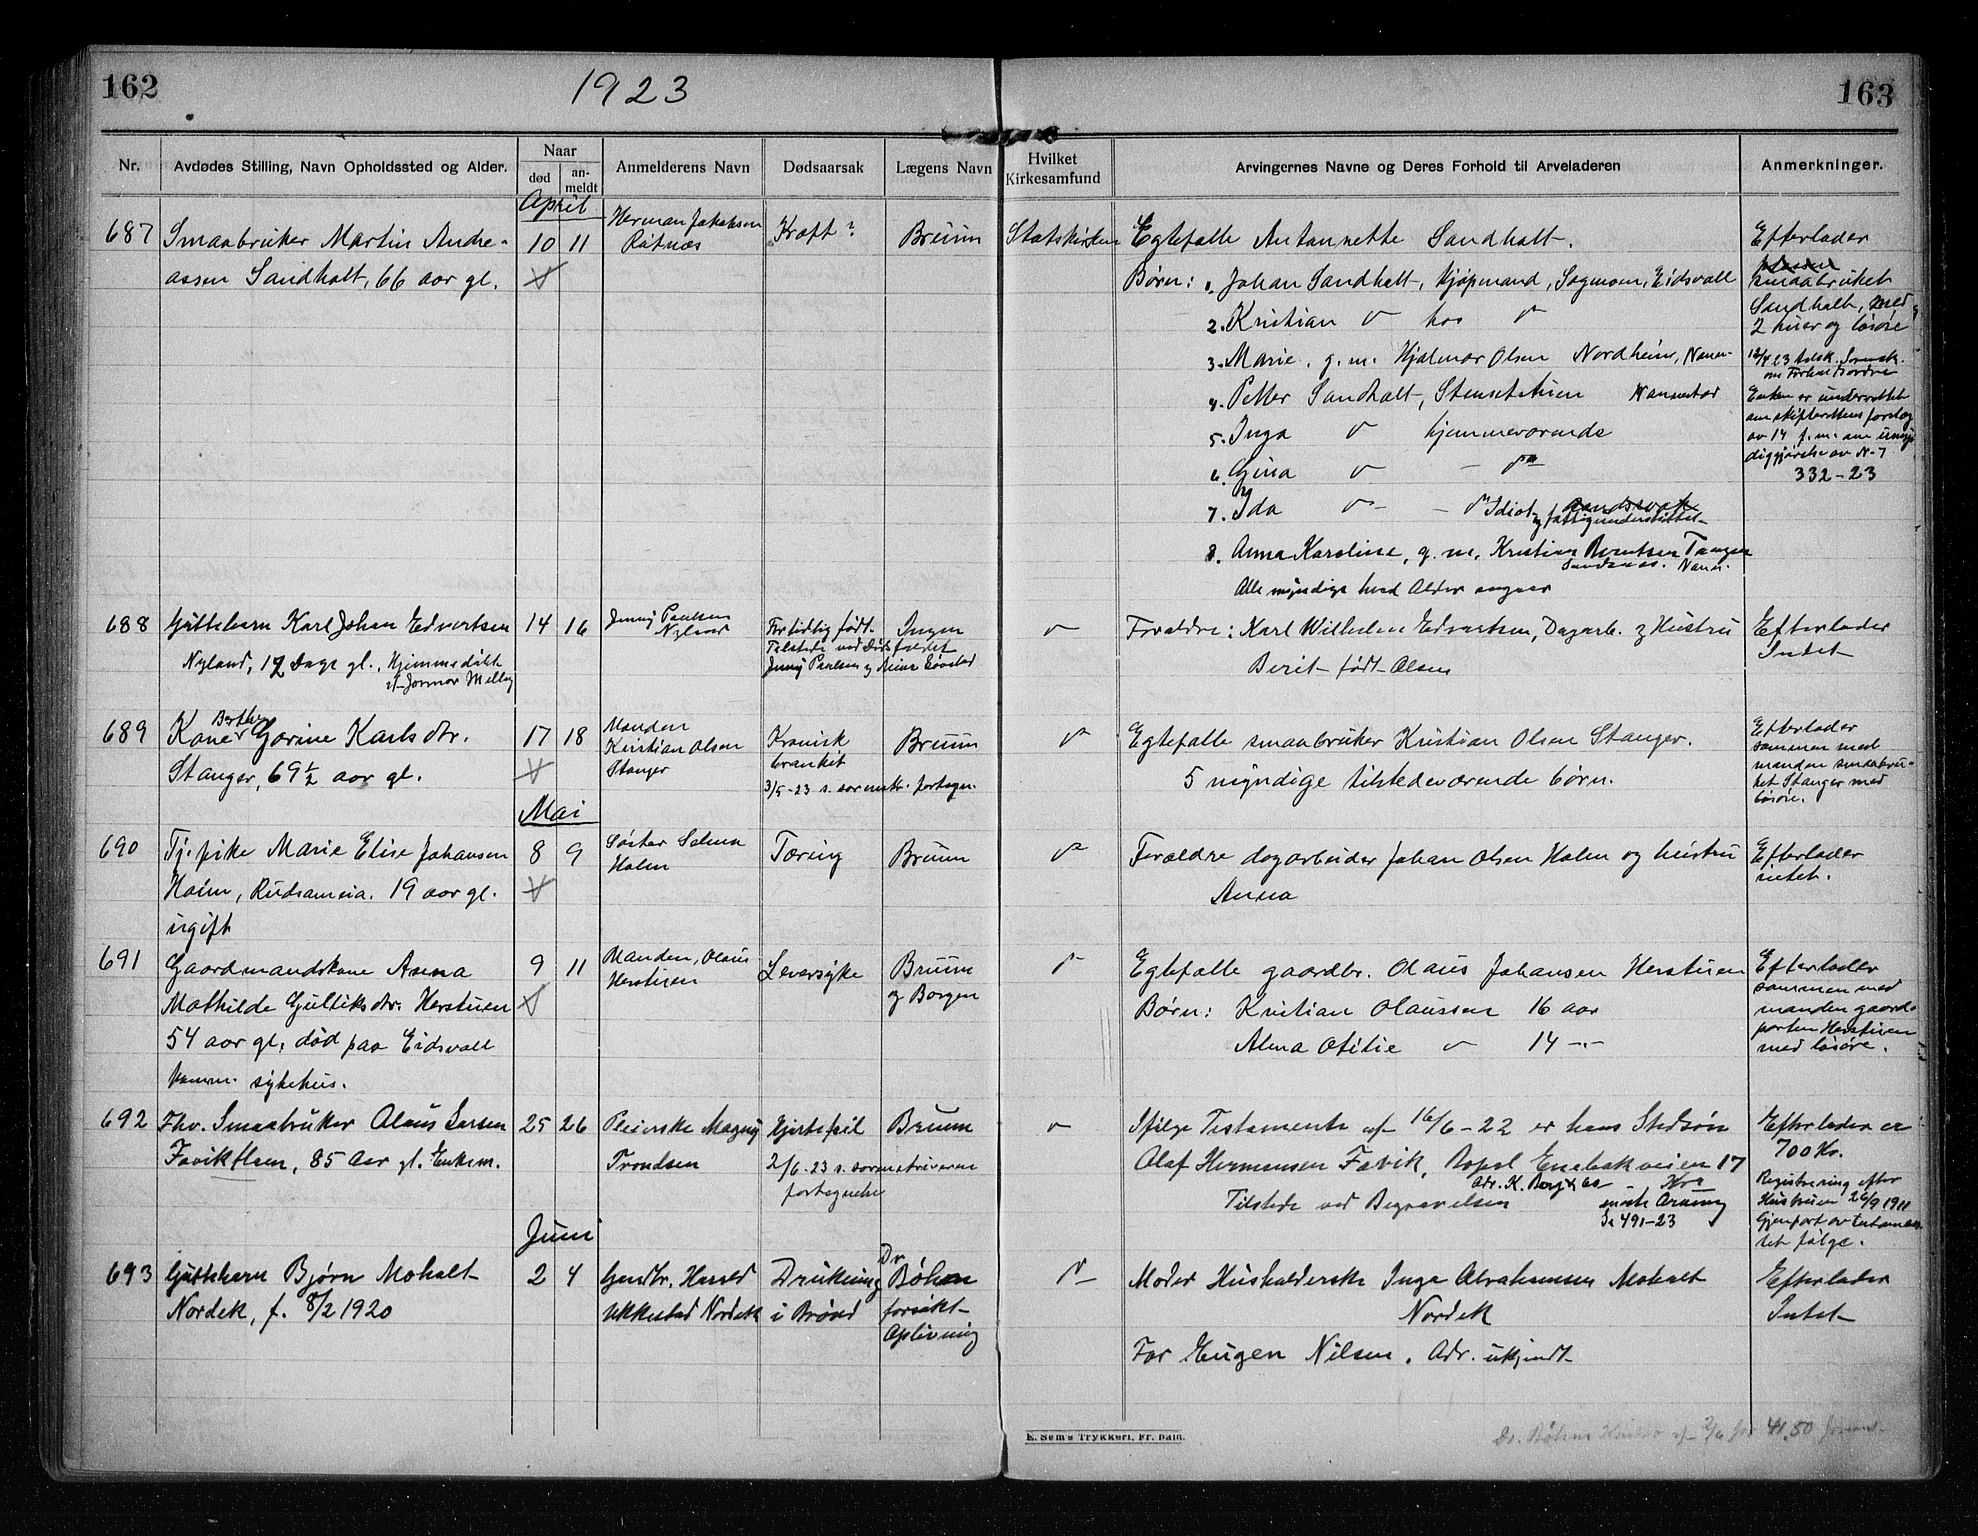 162
1923
163
Nr.
Avdødes Stilling, Navn Opholdssted og Alder.
Naar
død
an-
meldt
Anmelderens Navn
Dødsaarsak
Lægens Navn
Hvilket
Kirkesamfund
Arvingernes Navne og Deres Forhold til Arveladeren
Anmerkninger.
April
687
Smaabruker Martin Andre-
assen Sandholt, 66 aar gl.
10 11
Herman Jakobsen
Røtnes
Kræft?
Bruun
Statskirken
Egtefælle Antonette Sandholt.
Børn: 1. Johan Sandholt, Kjøpmand, Sagmoen, Eidsvoll
2. Kristian hos
3. Marie, g.m. Hjalmar Olsen Nordheim, Nannes-
4. Petter Sandholt, Stensetstuen Nannestad
5. Inga hjemmeværende
6. Gina
7. Ida Idiot
og fattigunderstøttet
8. Anna Karoline, g.m. Kristian Berntsen Tangen
Nann.
Alle myndige hvad Alder angaar
Efterlader
smaabruket
Sandholt, med
2 huer og løsøre
Enken er underrettet
om skifterettens forslag
av 14 f.m. om umyn
diggjørelse av N-7
332-23
688
Guttebarn Karl Johan Edvartsen
Nyland, 12 Dage gl., Hjemmedøbt
af Jonmor Melby
14 16
Jenny Paulsen
Nyland
For tidlig født.
Tilstede ved Dødsfaldet
Jenny Paulsen og
Ingen
Forældre: Karl Wilhelm Edvartsen, Dagarb. og Hustru
Berit født Olsen
Efterlader
Intet
689
Kone Berthe Gorine Karlsdtr.
Stanger, 69½ aar gl.
17 18
Manden
Kristian Olsen
Stanger
Kronisk
bronkit
3/5-23 s. sorenskr. fortegn.
Bruun
Egtefælle smaabruker Kristian Olsen Stanger.
5 myndige tilstedeværende børn.
Efterlader
sammen med
manden smaabru-
ket Stanger med
løsøre.
Mai
690
Tj. pike Marie Elise Johansen
Holm, Rudsameia. 19 aar gl.
ugift
8 9
Søster Selma
Holm
Tæring
Bruun
Forældre dagarbeider Johan Olsen Holm og hustru
Anna
Efterlader
intet.
691
Gaardmandskone Anna
Mathilde Gulliksdtr. Herstuen
54 aar gl, død paa Eidsvoll
komm. sykehus.
9 11
Manden, Olaus
Herstuen
Leversyke
Bruun
og Borgen
Egtefælle gaardbr. Olaus Johansen Herstuen
Børn: Kristian Olaussen 16 aar
Alma Otilie 14 -.-
Efterlader
sammen med
manden gaard-
parten Herstuen
med løsøre.
692
Fhv. Smaabruker Olaus Larsen
Favikflaen, 85 Aar gl. Enkem.
25 26
Pleierske Magny
Trondsen
Hjertefeil
2/6-23 s. sorenskriveren
fortegnelse
Bruun
Ifølge Testamente af 16/6-22 er hans Stedsøn
Olaf Hermansen Favik, Bopel Enebakveien 17
Tilstede ved Begravelsen
Se 491-23
Efterlader ca
700 Kr.
Registrering efter
Hustruen 26/9 1911
Gjenpart av testamen
tet følge.
Juni
693
Guttebarn Bjørn Moholt
Nordek, f. 8/2 1920
2 4
Gaardbr. Harald
Ukkestad Nordek
Drukning
i Brønd
Dr.
Bøhn
forsøkt
Oplivning
Moder Husholderske Inga Abrahamsen Moholt
Nordek
Far Eugen Nilsen. Adr. ukjendt
Efterlader
Intet
E. Sem's Trykkeri, Fr.hald.